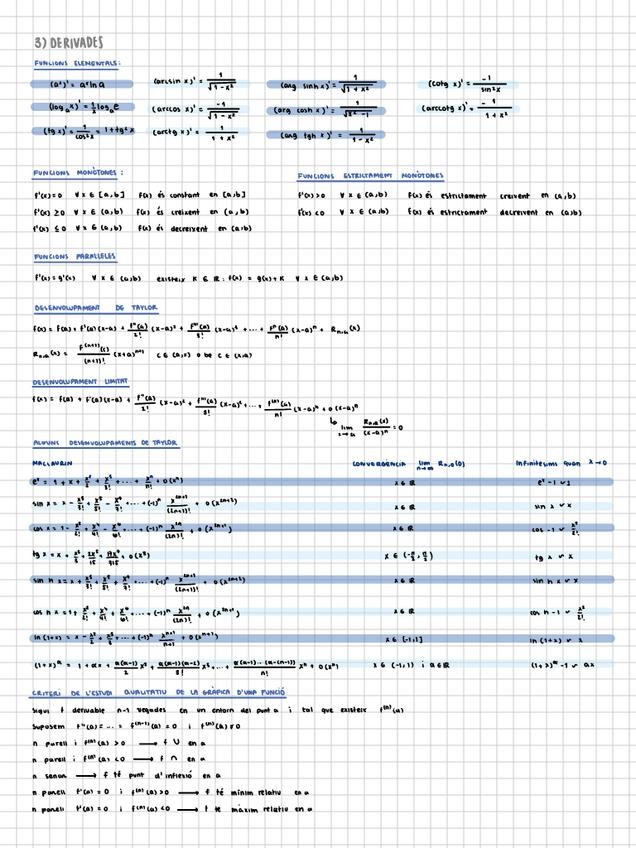 3) DERIVADES
FUNCIONS ELEMENTALS:
(aˣ)' = aˣ ln a (arcsin x)' = 1/√(1 - x²) (arg sinh x)' = 1/√(1 + x²) (cotg x)' = -1/sin²x
(logₐ x)' = 1/x logₐ e (arccos x)' = -1/√(1 - x²) (arg cosh x)' = 1/√(x² - 1) (arccotg x)' = -1/(1 + x²)
(tg x)' = 1/cos²x = 1 + tg² x (arctg x)' = 1/(1 + x²) (arg tgh x)' = 1/(1 - x²)
FUNCIONS MONÒTONES: FUNCIONS ESTRICTAMENT MONÒTONES
f'(x) = 0 ∀ x ∈ [a,b] f(x) és constant en [a,b] f'(x) > 0 ∀ x ∈ (a,b) f(x) és estrictament creixent en (a,b)
f'(x) ≥ 0 ∀ x ∈ (a,b) f(x) és creixent en (a,b) f'(x) < 0 ∀ x ∈ (a,b) f(x) és estrictament decreixent en (a,b)
f'(x) ≤ 0 ∀ x ∈ (a,b) f(x) és decreixent en (a,b)
FUNCIONS PARAL·LELES
f'(x) = g'(x) ∀ x ∈ (a,b) existeix K ∈ ℝ : f(x) = g(x) + K ∀ x ∈ (a,b)
DESENVOLUPAMENT DE TAYLOR
f(x) = f(a) + f'(a)(x-a) + f''(a)/2! (x-a)² + f'''(a)/3! (x-a)³ + ... + fⁿ(a)/n! (x-a)ⁿ + Rₙ,ₐ(x)
Rₙ,ₐ(x) = f⁽ⁿ⁺¹⁾(c)/(n+1)! (x+a)ⁿ⁺¹ c ∈ (a,x) o be c ∈ (x,a)
DESENVOLUPAMENT LIMITAT
f(x) = f(a) + f'(a)(x-a) + f''(a)/2! (x-a)² + f'''(a)/3! (x-a)³ + ... + f⁽ⁿ⁾(a)/n! (x-a)ⁿ + o(x-a)ⁿ
↳ lim x→a Rₙ,ₐ(x)/(x-a)ⁿ = 0
ALGUNS DESENVOLUPAMENTS DE TAYLOR
MACLAURIN CONVERGÈNCIA lim n→∞ Rₙ,₀(0) Infinitèsims quan x → 0
eˣ = 1 + x + x²/2! + x³/3! + ... + xⁿ/n! + o(xⁿ) x ∈ ℝ eˣ - 1 ∼ x
sin x = x - x³/3! + x⁵/5! - x⁷/7! + ... + (-1)ⁿ x²ⁿ⁺¹/(2n+1)! + o(x²ⁿ⁺²) x ∈ ℝ sin x ∼ x
cos x = 1 - x²/2! + x⁴/4! - x⁶/6! + ... + (-1)ⁿ x²ⁿ/(2n)! + o(x²ⁿ⁺¹) x ∈ ℝ cos -1 ∼ x²/2!
tg x = x + x³/3 + 2x⁵/15 + 17x⁷/315 + o(x⁸) x ∈ (-π/2, π/2) tg x ∼ x
sin h x = x + x³/3! + x⁵/5! + x⁷/7! + ... + (-1)ⁿ x²ⁿ⁺¹/(2n+1)! + o(x²ⁿ⁺²) x ∈ ℝ sin h x ∼ x
cos h x = 1 + x²/2! + x⁴/4! + x⁶/6! + ... + (-1)ⁿ x²ⁿ/(2n)! + o(x²ⁿ⁺¹) x ∈ ℝ cos h -1 ∼ x²/2!
ln (1+x) = x - x²/2 + x³/3 + ... + (-1)ⁿ xⁿ⁺¹/n+1 + o(xⁿ⁺²) x ∈ (-1,1] ln (1+x) ∼ x
(1+x)^α = 1 + αx + α(α-1)/2 x² + α(α-1)(α-2)/3! x³ + ... + α(α-1)...(α-(n-1))/n! xⁿ + o(xⁿ) x ∈ (-1,1) i α ∈ ℝ (1+x)^α - 1 ∼ αx
CRITERI DE L'ESTUDI QUALITATIU DE LA GRÀFICA D'UNA FUNCIÓ
Sigui f derivable n-1 vegades en un entorn del punt a i tal que existeix f⁽ⁿ⁾(a)
Suposem f''(a) = ... = f⁽ⁿ⁻¹⁾(a) = 0 i f⁽ⁿ⁾(a) ≠ 0
n parell i f⁽ⁿ⁾(a) > 0 → f ∪ en a
n parell i f⁽ⁿ⁾(a) < 0 → f ∩ en a
n senar → f té punt d'inflexió en a
n parell f'(a) = 0 i f⁽ⁿ⁾(a) > 0 → f té mínim relatiu en a
n parell f'(a) = 0 i f⁽ⁿ⁾(a) < 0 → f té màxim relatiu en a